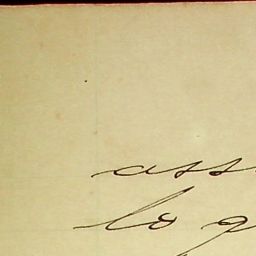 ass
lo g